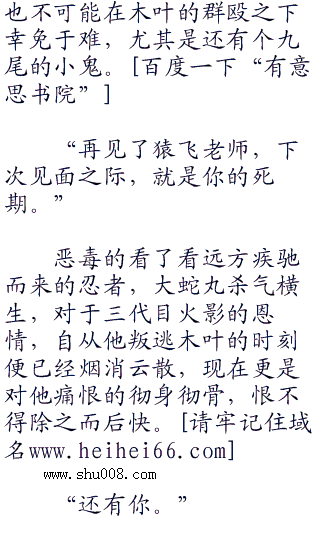 也不可能在木叶的群殴之下
幸免于难，尤其是还有个九
尾的小鬼。[百度一下“有意
思书院”]
“再见了猿飞老师，下
次见面之际，就是你的死
期。”
恶毒的看了看远方疾驰
而来的忍者，大蛇丸杀气横
生，对于三代目火影的恩
情，自从他叛逃木叶的时刻
便已经烟消云散，现在更是
对他痛恨的彻身彻骨，恨不
得除之而后快。[请牢记住域
名www.heihei66.com]
www.shu008.com
“还有你。”